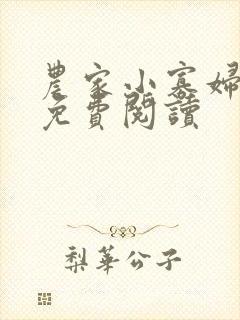 農家小寡婦
免費閱讀
梨華公子